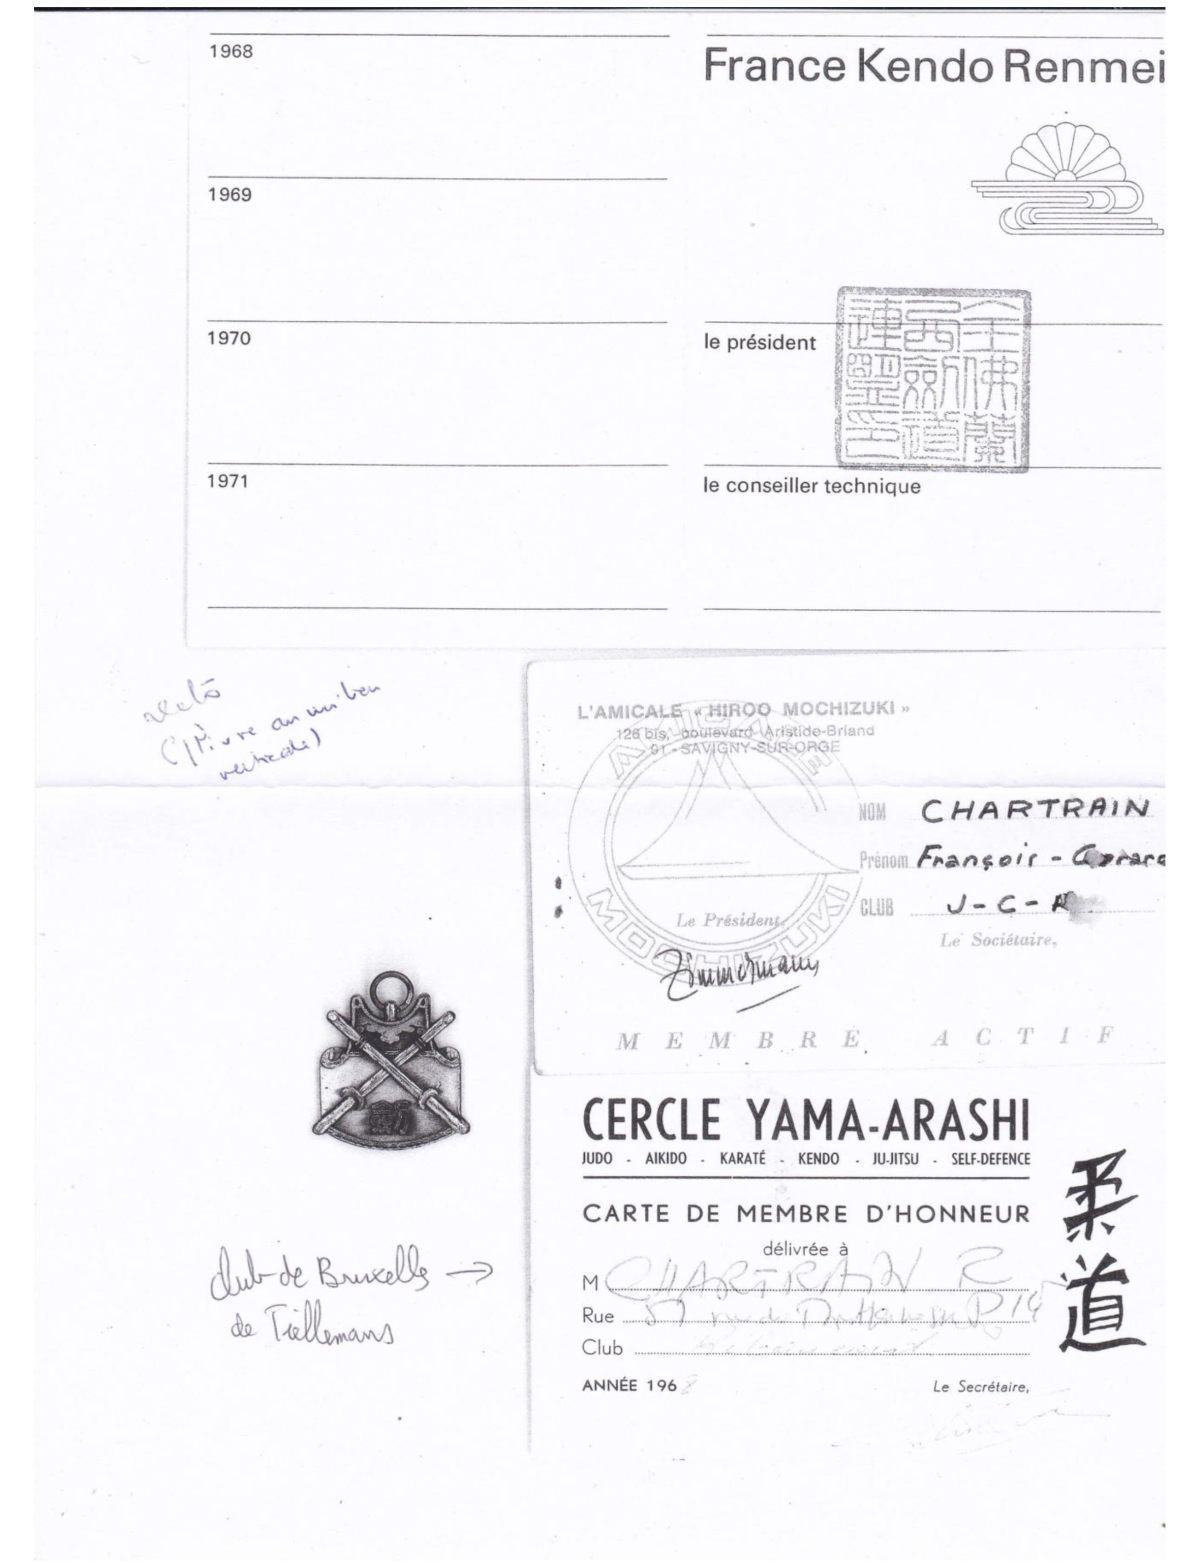 1968
1969
1970
1971
France Kendo Renmei
le président
全佛蘭
西劍道
連盟印
le conseiller technique
(pliure au milieu
verticale)
L'AMICALE « HIROO MOCHIZUKI »
126 bis, boulevard Aristide-Briand
91 - SAVIGNY-SUR-ORGE
AMICALE
MOCHIZUKI
NOM CHARTRAIN
Prénom François - Gérard
CLUB J-C-
Le Président,
Le Sociétaire,
Zimmermann
MEMBRE ACTIF
CERCLE YAMA-ARASHI
JUDO - AIKIDO - KARATÉ - KENDO - JU-JITSU - SELF-DEFENCE
CARTE DE MEMBRE D'HONNEUR
délivrée à
M CHARTRAIN R
Rue 57 rue
Club
ANNÉE 1968
Le Secrétaire,
柔道
劍
club de Bruxelles →
de Tiellemans